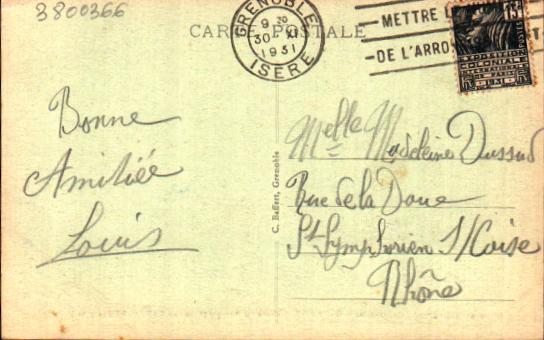 3800366
CARTE POSTALE
GRENOBLE
9 30
30 XI
1931
ISÈRE
METTRE L
DE L'ARRO
15c
EXPOSITION
COLONIALE
Bonne
Amitiée
Louis
C. Baffert, Grenoble
Melle Madeleine Dussud
Rue de la Doue
St Symphorien S/Coise
Rhône